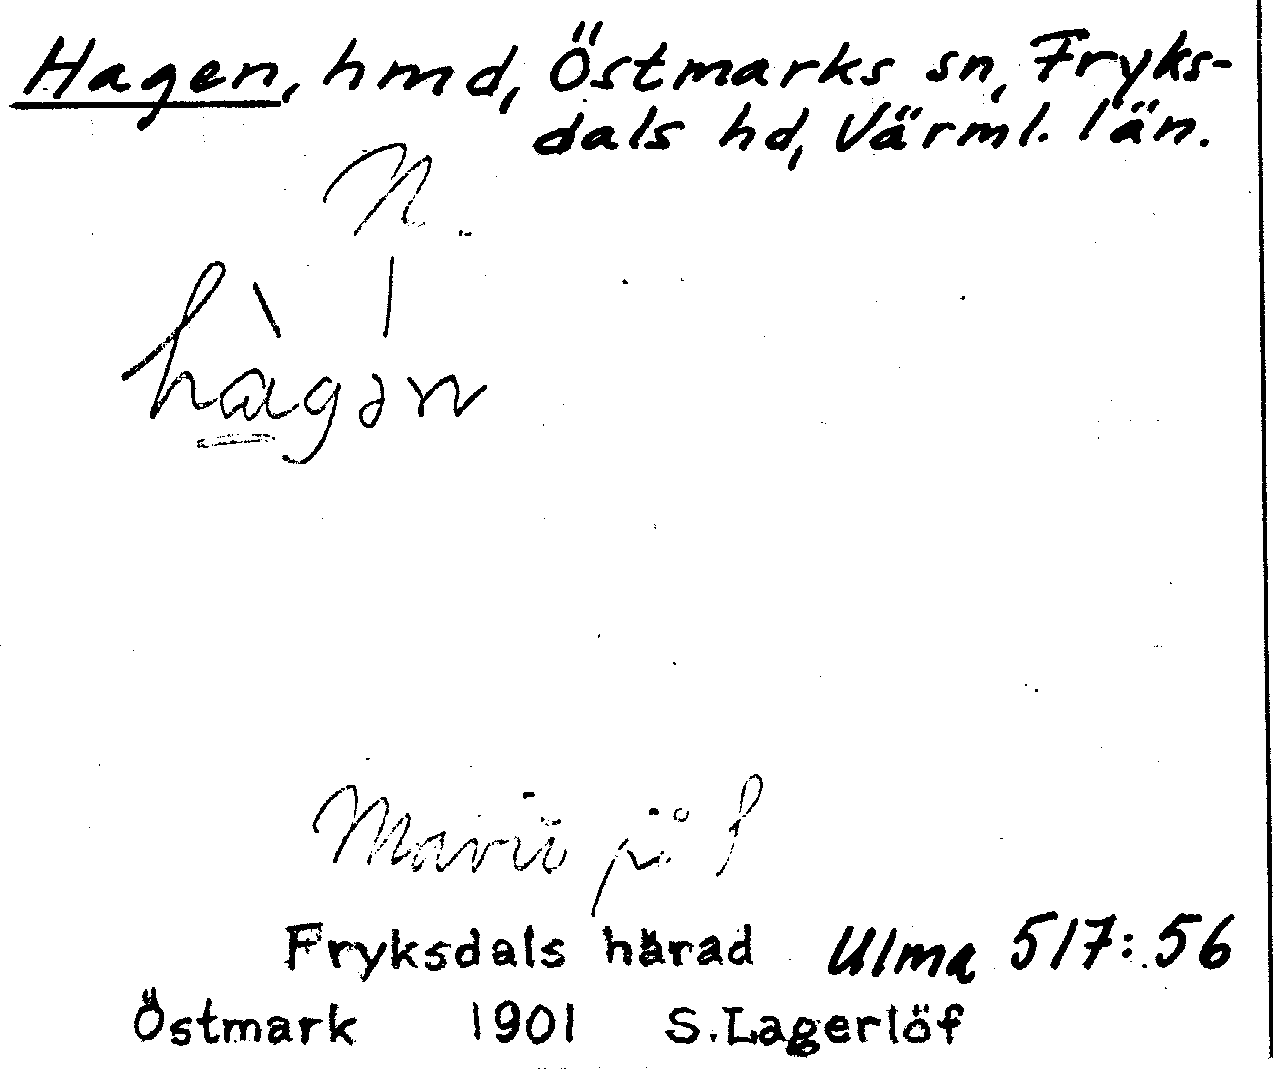 Hagen, hmd, Östmarks sn, Fryks-
dals hd, Värml. län.
N.
hàgən
Fryksdals härad Ulma 517:56
Östmark 1901 S. Lagerlöf